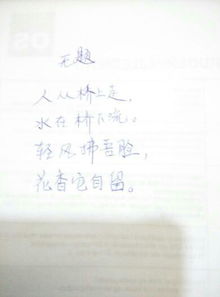 无题
人从桥上走,
水在桥下流。
轻风拂吾脸,
花香自留。